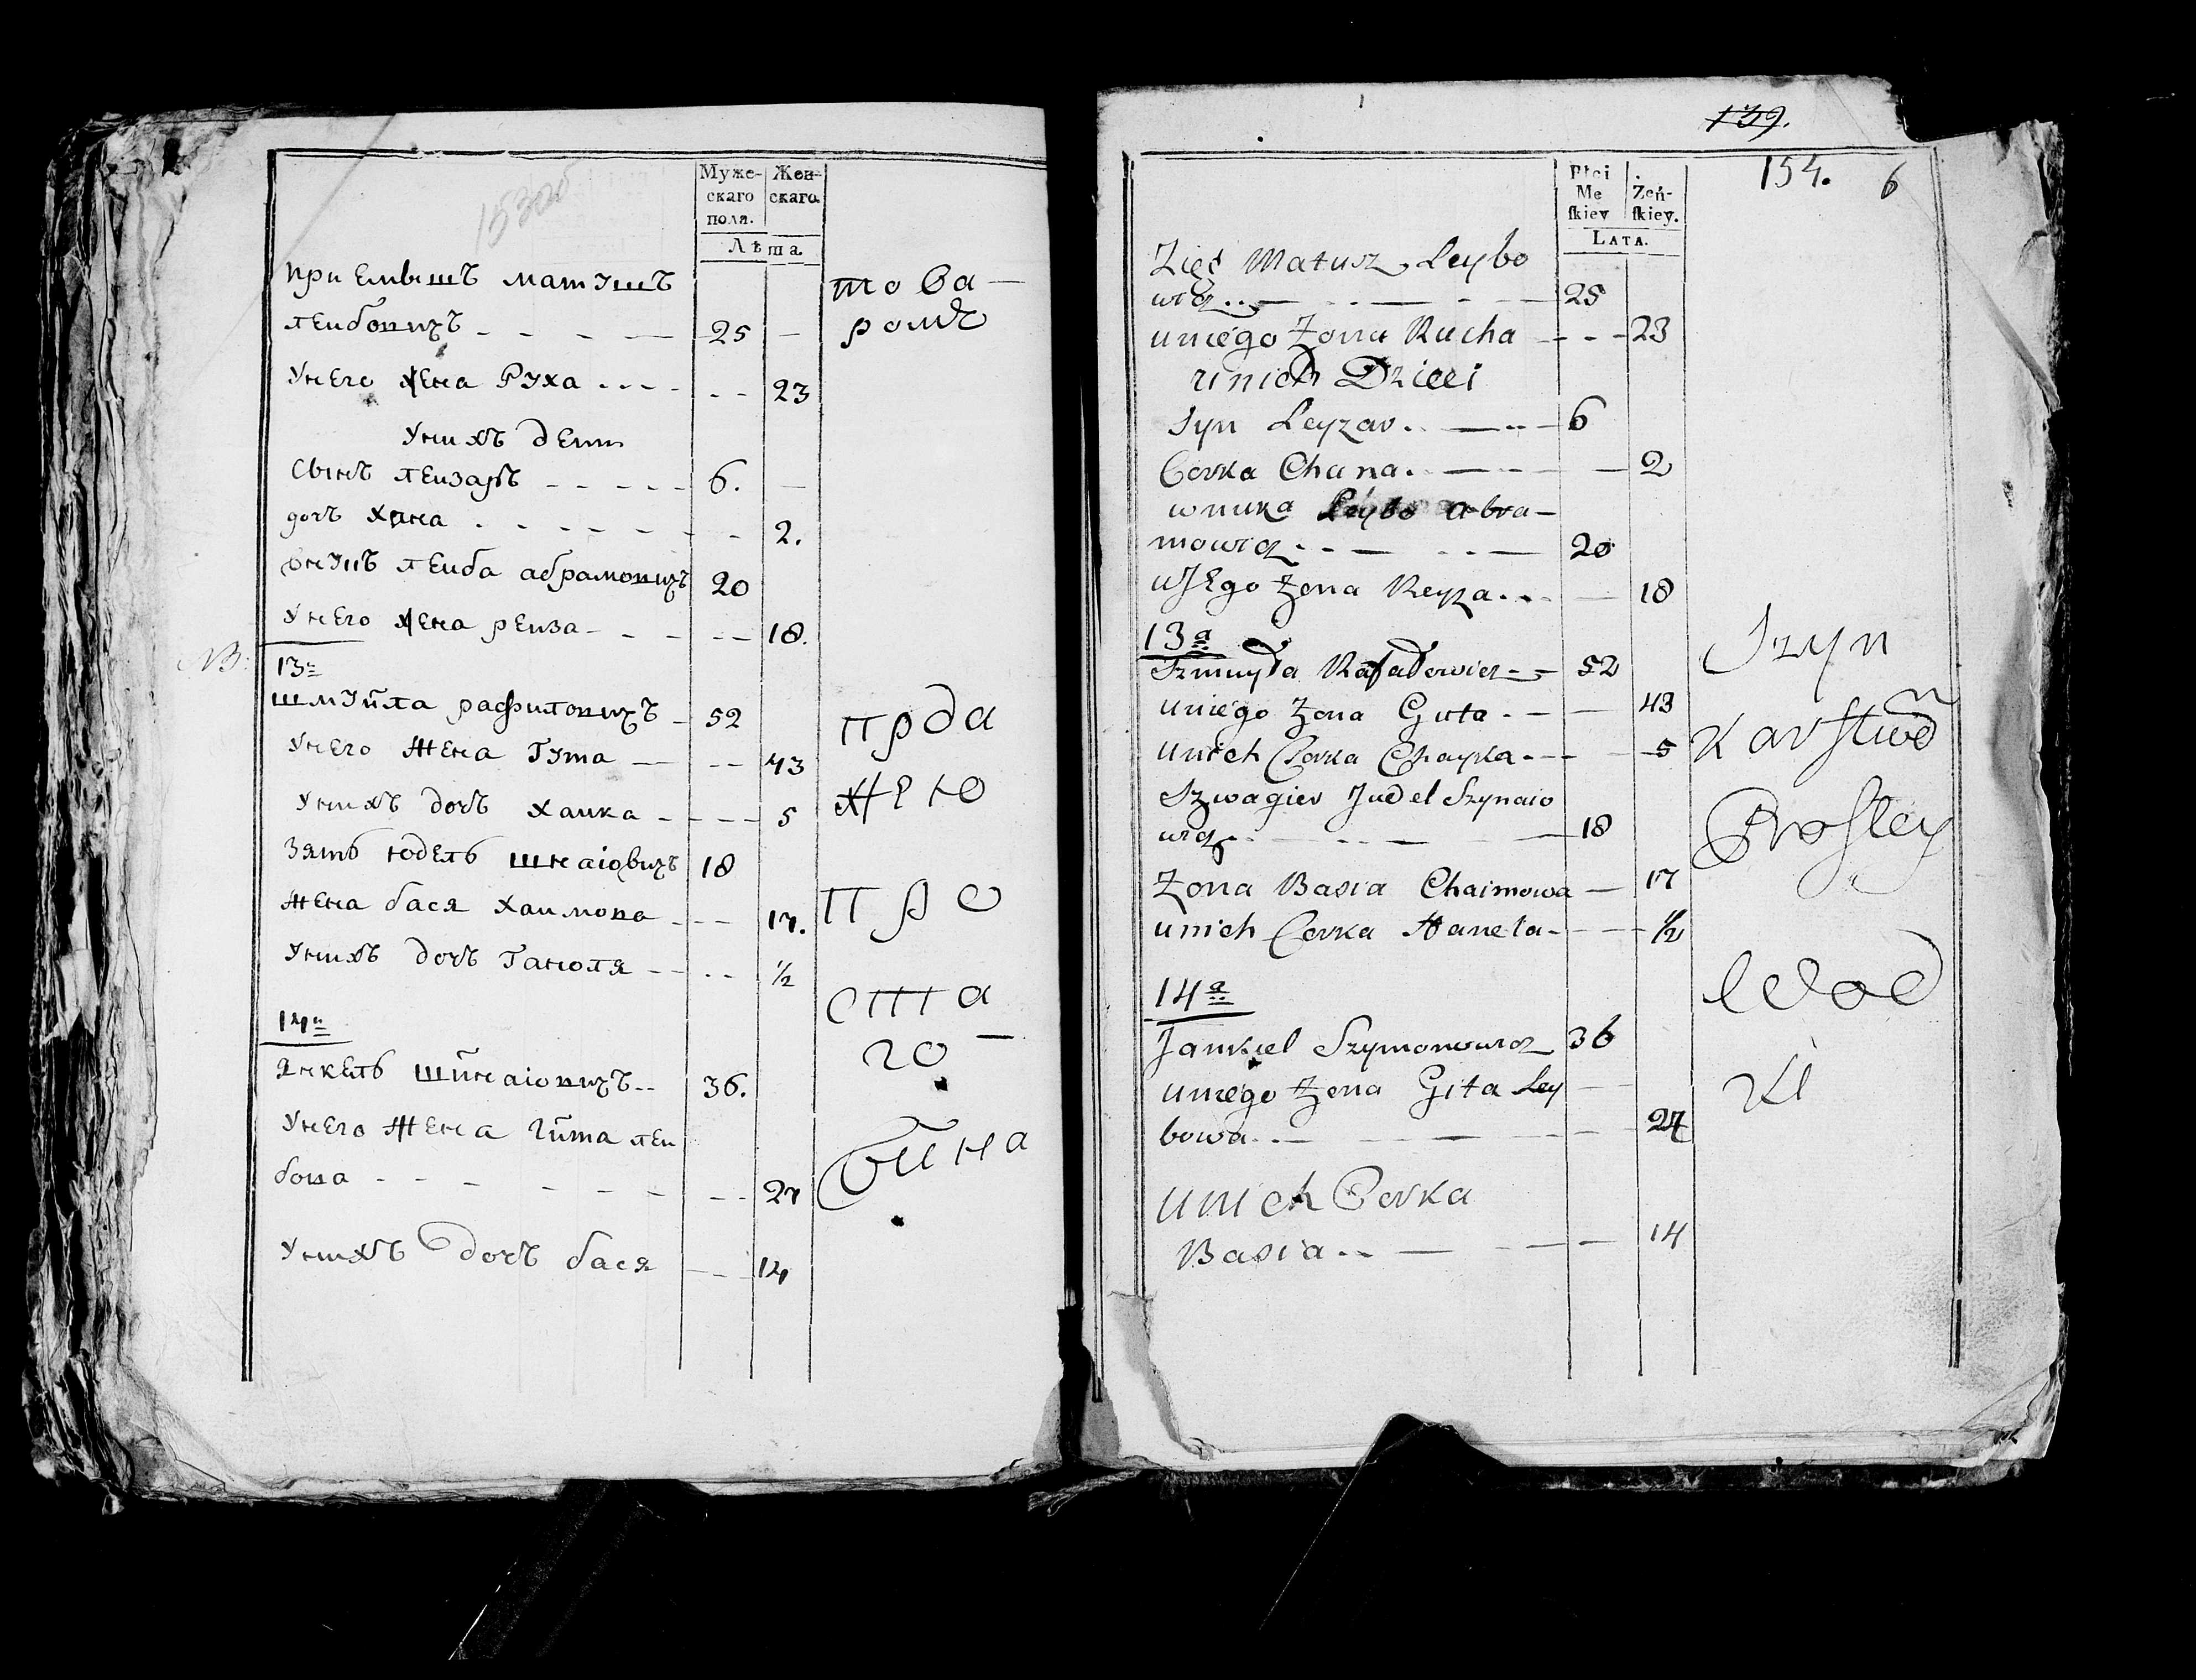 153об
Муже-
скаго
пола.
Жен-
скаго.
Лѣта.
приемышъ матушъ
леибовичъ - - - — 25 —
Унего жена Руха - - - - 23
Унихъ дети
сынъ леизаръ - - - - - 6. —
дочъ хана . - - - - - - 2.
внукъ леиба абрамовичъ 20
Унего жена реиза - - - - — 18.
това—
ромъ
NB:
13й
шмуйла рафиловичъ - 52
Унего жена Гута — -- 43
Унихъ дочъ хаика - - - - 5
Зять юдель шнаіовичъ 18
жена бася хаимова - - - 17.
Унихъ дочъ Ганюля - - - - ½
14й
янкель шйнаіовичъ -- 36.
Унего жена гита леи
бова - - - - - - - -- 27
Унихъ дочъ бася — — 14
прда
жею
про
ста
го —
вина
139.
154. 6
Płci
Mę
skiey
Żeń-
skiey.
LATA.
Zięć Matusz Leybo
wicz .. — - — - — 25
uniego Żona Rucha — - - 23
unich Dzieci
syn Leyzar. — -- — 6
Corka Chana. — - — 2
wnuka Leybo abra—
mowicz - - — - - — 20
uJEgo Żona Reyza. . - — 18
13а
Szmuyła Rafałowicz - - 52
uniego Żona Guta - — — 43
unich Corka Chayka - - - - 5
Szwagier Judel Szynaio
wicz - - - - - — 18
Żona Basia Chaimowa — 17
unich Corka Hanela - — - ½
14а
Jankiel Szymonowicz 36
uniego Żona Gita Ley
bowa - - — - — — 27
unich Corka
Basia - - — - — — 14
Szyn
karstwo
Prostey
Wod
ki